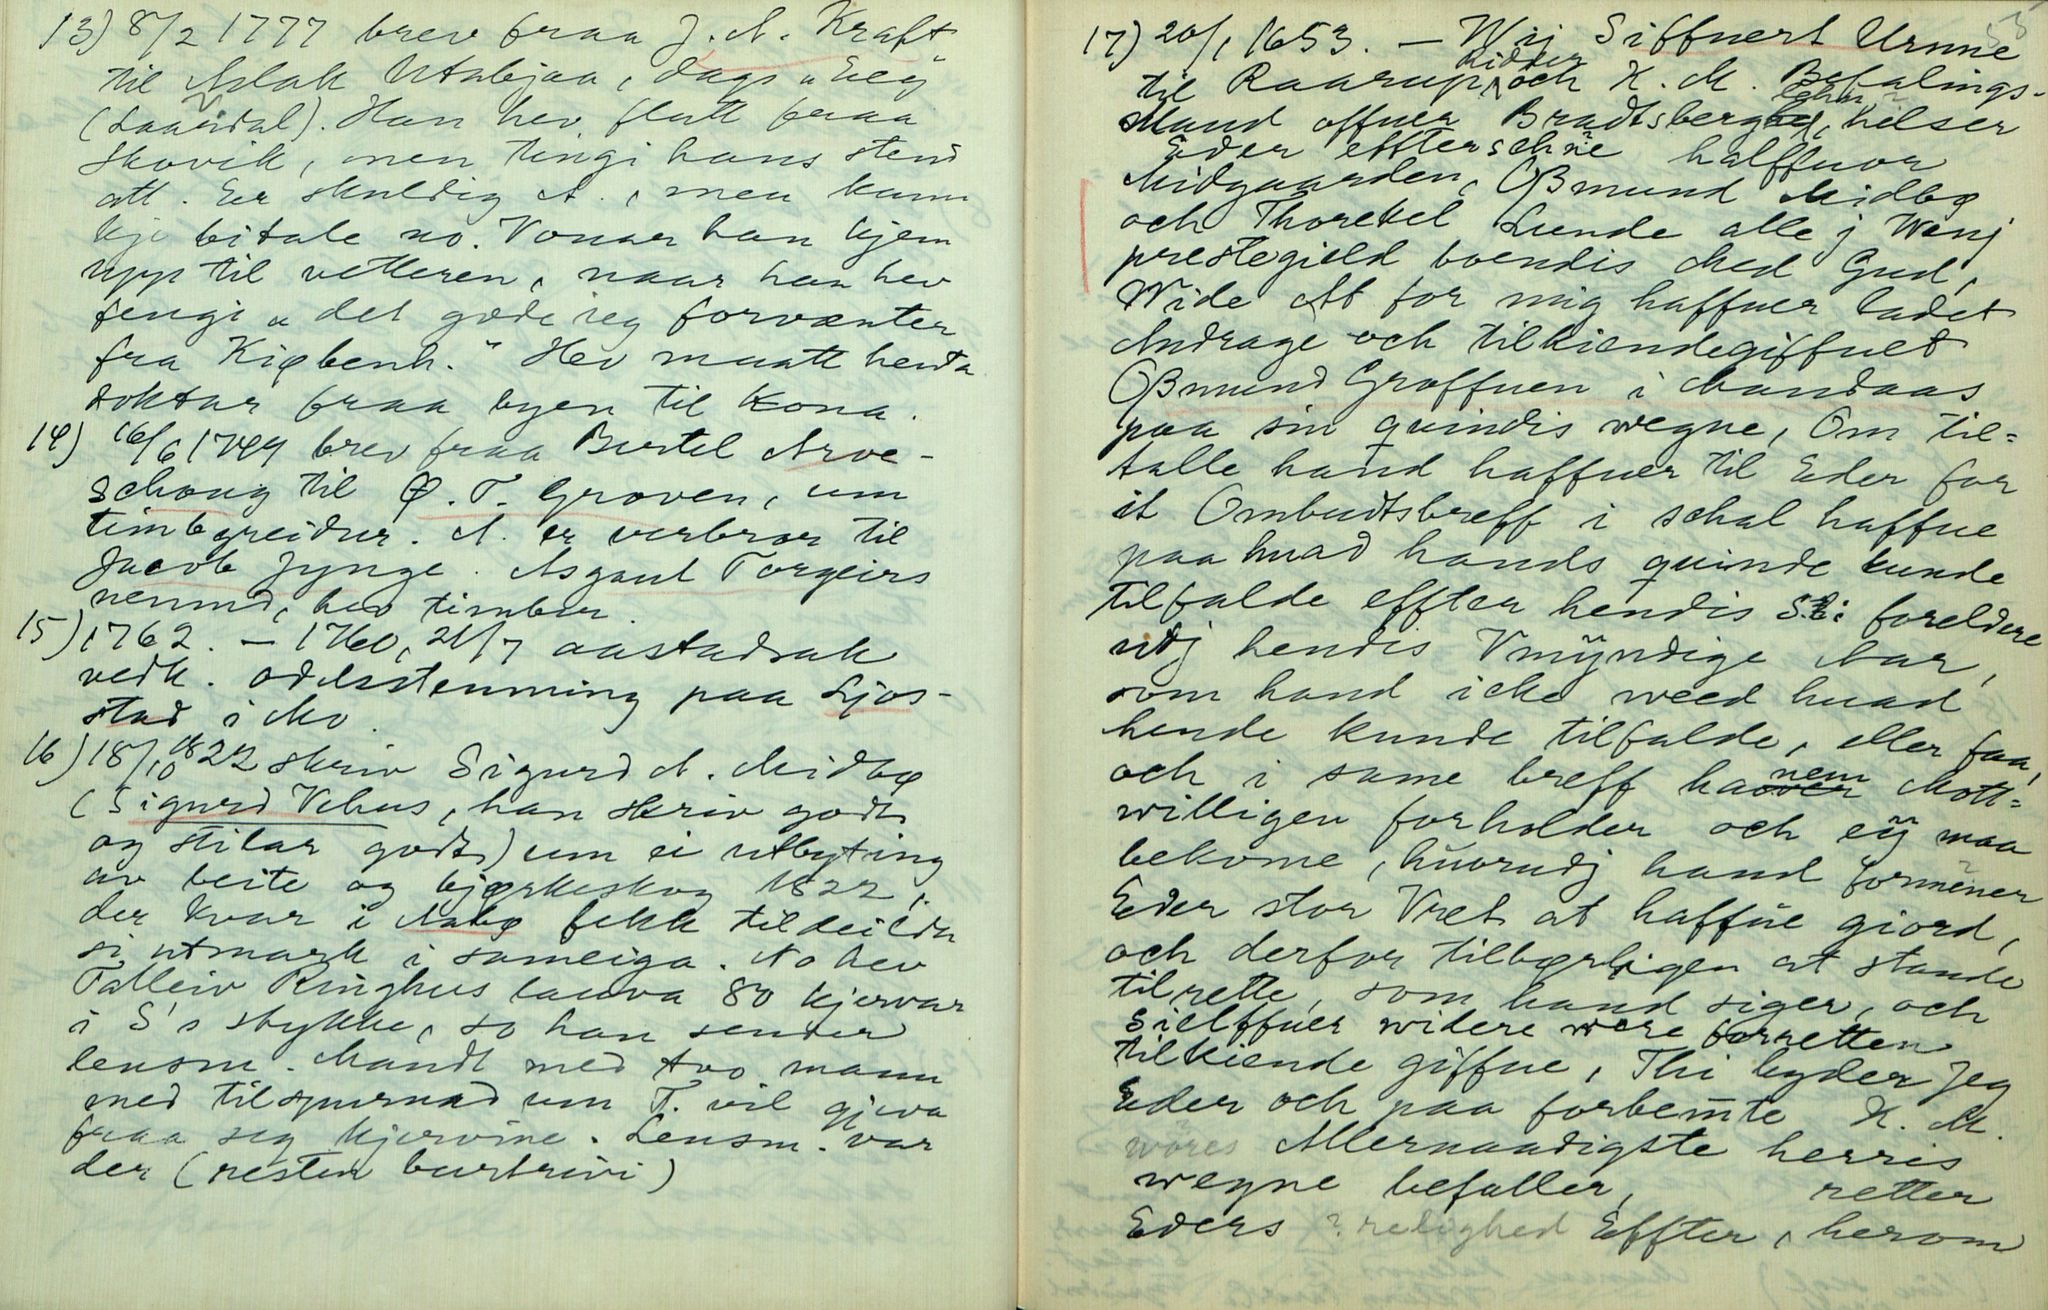 13) 8/2 1777 brev fraa J. N. Kraft
til Aslak Utabjaa, dags „Eeg"
(Laardal). Han hev flutt fraa
Skovik, men tingi hans stend
att. Er skuldig A., men kann
kje bitale no. Vonar han kjem
upp til vetteren, naar han hev
fengi „det gode ieg forvænter
fra Kiøbenh." Hev maatt henta
doktar fraa byen til kona.
14) 16/6 1799 brev fraa Bertel Arve-
schoug til Ø. T. Groven, um
timbgreidur. A. er verbror til
Jacob Jynge. Asgaut Torgeirs
nemnd, hev timbur.
15) 1762. - 1760, 21/7 aastadsak
vedk. odelsstemning paa Ljos-
stad i Mo.
16) 18/10 1822 skriv Sigurd A. Midbø
(Sigurd Vehus, han skriv godt
og stilar godt) um ei utbyting
av beite og bjørkeskog 1822,
der kvar i Nabø fekk tildeildu
si utmark i sameiga. No hev
Talleiv Ringhus lauva 80 kjervar
i S's stykke, so han sender
lensm. Mandt med tvo mann
med tilspurnad um T. vil gjeva
fraa seg kjervine. Lensm. var
der (resten burtrivi)
53
17) 20/1 1653. - Wij Siffuert Urnne
til Raarup, Ridder och K. M. Befalings-
Mand offuer Bradtsberg Lehn, helser
Eder effterschne halffuor
Midgaarden, Oßmund Midbø
och Thorekel Lunde alle j Winj
prestegield boendis Med Gud,
Wide At for mig haffuer ladet
Andrage och tilkiendegiffuet
Oßmund Groffuen i Mandaas
paa sin quindis wegne, Om til=
talle hand haffuer til Eder for
it Ombudtsbreff i schal haffue
paa huad hands quinde kunde
tilfalde effter hendis S: foreldere
udj hendis Vmÿndige Aar,
som hand icke weed huad
hende kunde tilfalde, eller faa,
och i same breff hannem Mott=
willigen forholder och eÿ maa
bekome, huorudj hand formener
Eder stor Vret at haffue giord,
och derfor tilbørligen at stande
tilrette, som hand siger, och
sielffuer widere were forretten
tilkiende giffue, Thi byder Jeg
Eder och paa forbemte K. M.
wores Allernaadigste herris
wegne befaller, retter
Eders ? relighed Effter, herom